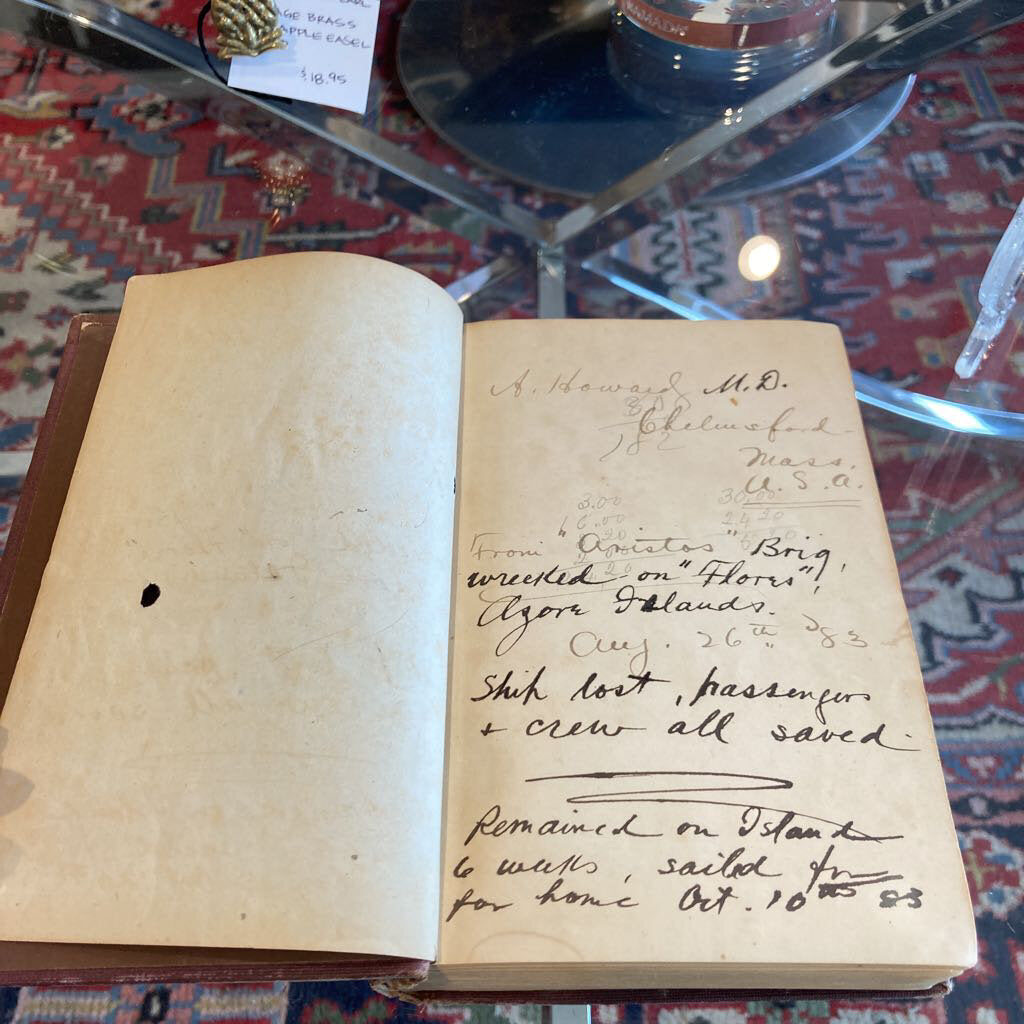 AGE BRASS
APPLE EASEL
$18.95
A. Howard M.D.
Chelmsford
Mass.
U.S.A.
3.00
6.00
30.00
24.20
From "Aristos" Brig,
wrecked on "Flores",
Azore Islands.
Aug. 26th '83
Ship lost, passengers
+ crew all saved.
Remained on Island
6 weeks, sailed
for home Oct. 10th 83